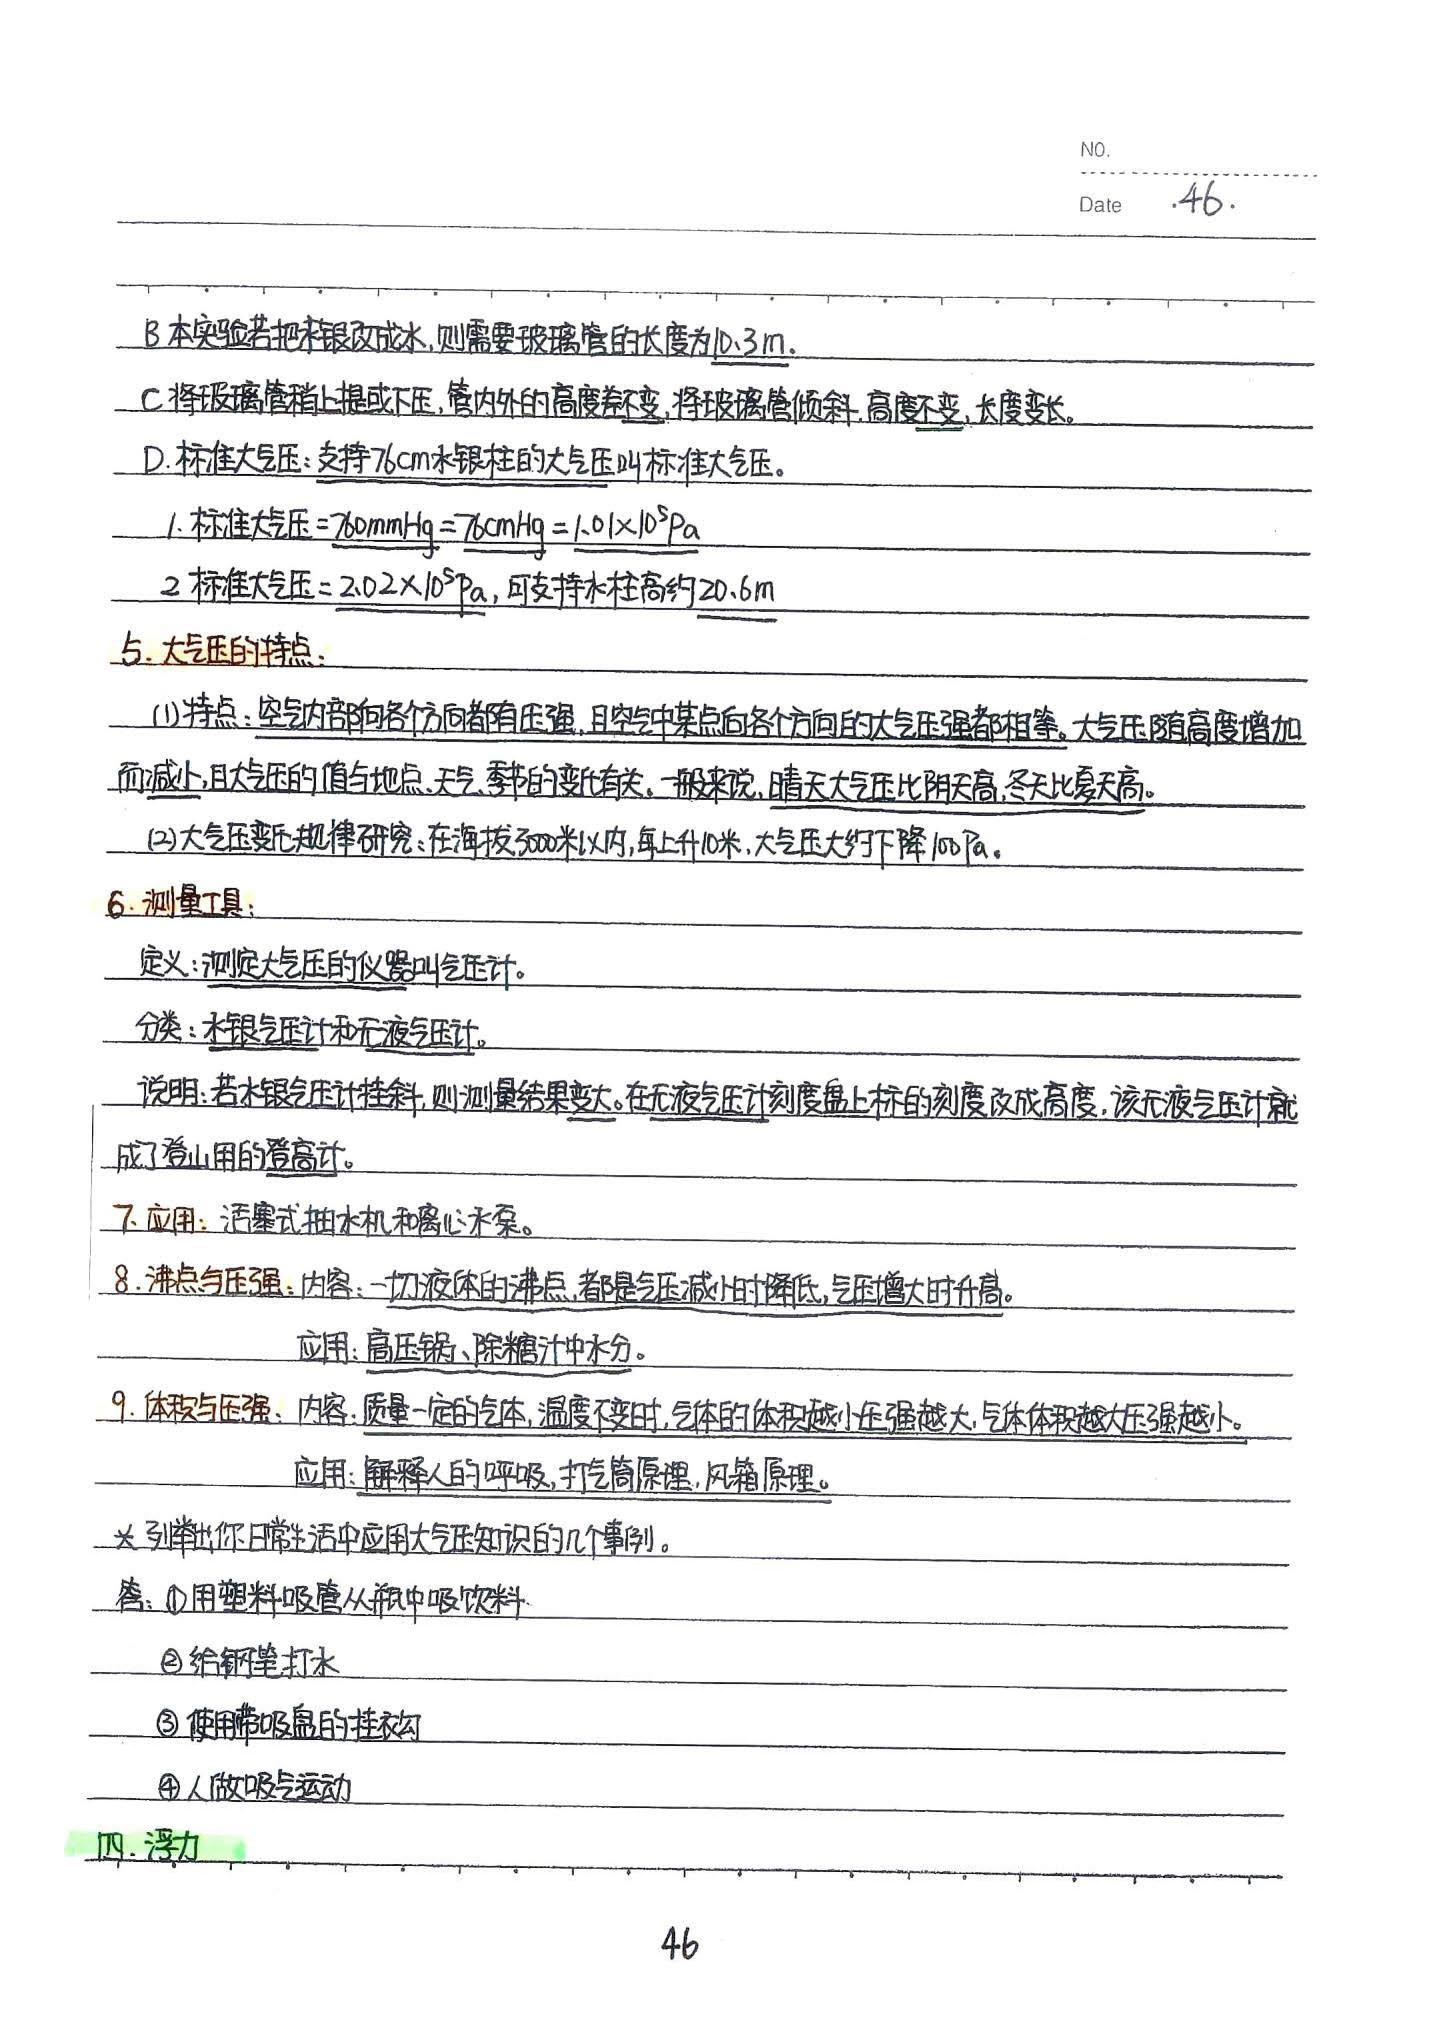 NO.
Date .46.
B 本实验若把水银改成水,则需要玻璃管的长度为10.3m.
C 将玻璃管稍上提或下压,管内外的高度差不变,将玻璃管倾斜,高度不变,长度变长。
D. 标准大气压:支持76cm水银柱的大气压叫标准大气压。
1. 标准大气压=760mmHg=76cmHg=1.01×10⁵Pa
2 标准大气压=2.02×10⁵Pa,可支持水柱高约20.6m
5. 大气压的特点:
(1)特点:空气内部向各个方向都有压强,且空气中某点向各个方向的大气压强都相等。大气压随高度增加
而减小,且大气压的值与地点、天气、季节的变化有关。一般来说,晴天大气压比阴天高,冬天比夏天高。
(2)大气压变化规律研究:在海拔3000米以内,每上升10米,大气压大约下降100Pa。
6. 测量工具:
定义:测定大气压的仪器叫气压计。
分类:水银气压计和无液气压计。
说明:若水银气压计挂斜,则测量结果变大。在无液气压计刻度盘上标的刻度改成高度,该无液气压计就
成了登山用的登高计。
7. 应用:活塞式抽水机和离心水泵。
8. 沸点与压强:内容:一切液体的沸点,都是气压减小时降低,气压增大时升高。
应用:高压锅、除糖汁中水分。
9. 体积与压强:内容:质量一定的气体,温度不变时,气体的体积越小压强越大,气体体积越大压强越小。
应用:解释人的呼吸,打气筒原理,风箱原理。
* 列举出你日常生活中应用大气压知识的几个事例。
答:①用塑料吸管从瓶中吸饮料
②给钢笔打水
③使用带吸盘的挂衣勾
④人做吸气运动
四.浮力
46